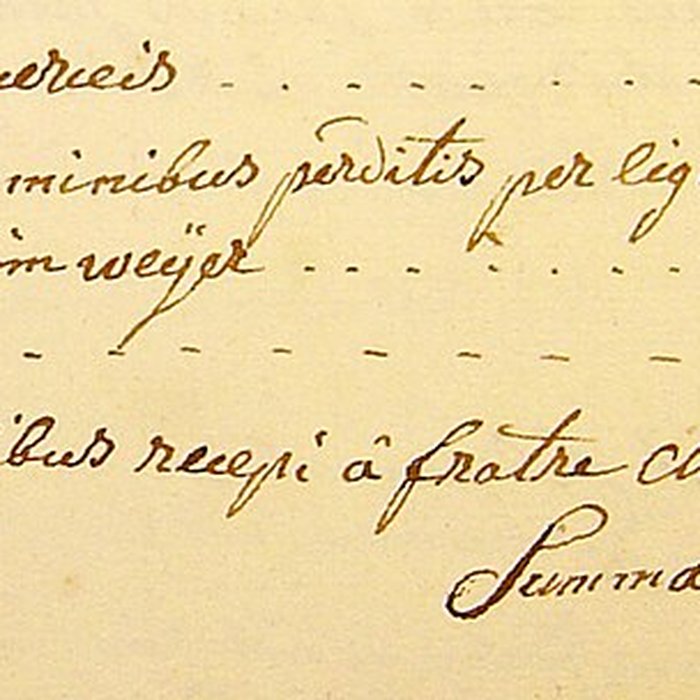 uerceis - . - - - - - -
minibus perditis per lig
im weÿer - - - - - - - -
- - - - - - - -
ibus recepi â fratre
Summa